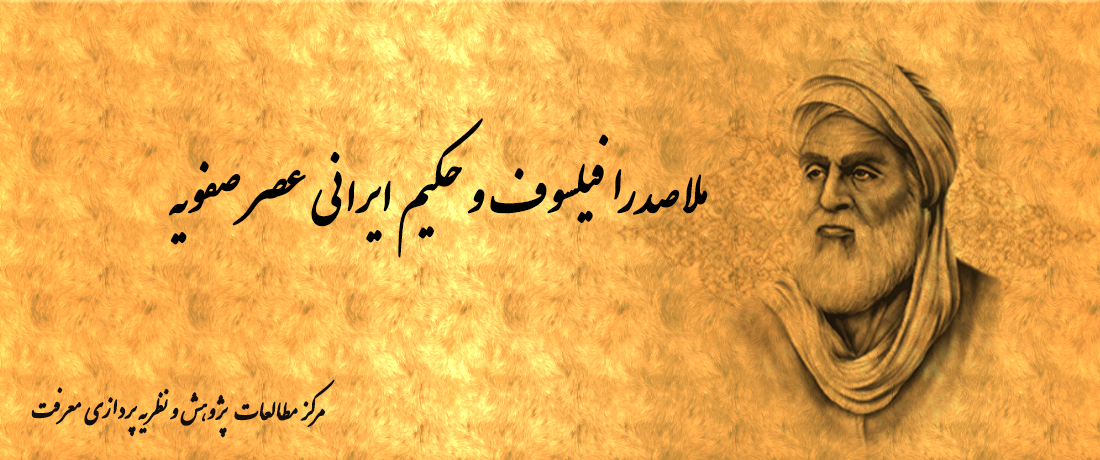 ملاصدرا فیلسوف و حکیم ایرانی عصر صفویه
مرکز مطالعات پژوهش و نظریه پردازی معرفت